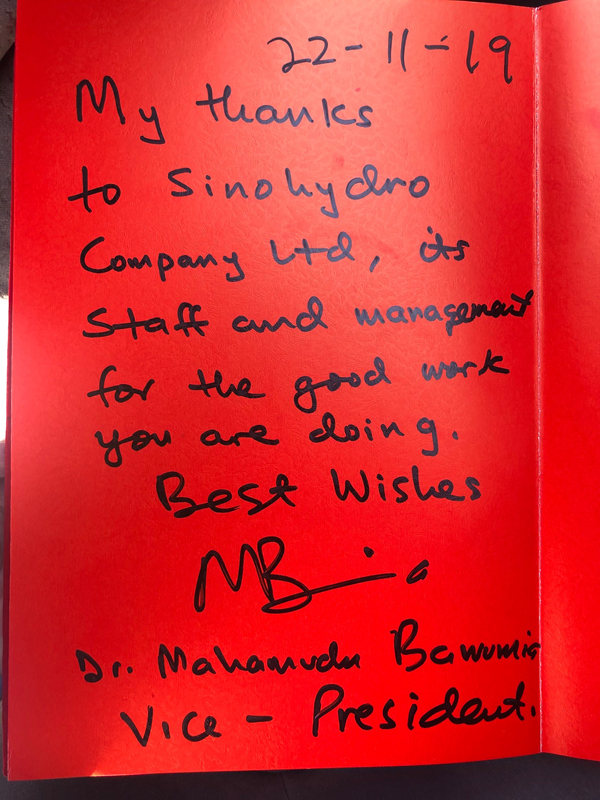 22-11-19
My thanks
to Sinohydro
Company Ltd, its
Staff and management
for the good work
you are doing.
Best Wishes
Dr. Mahamudu Bawumia
Vice - President.